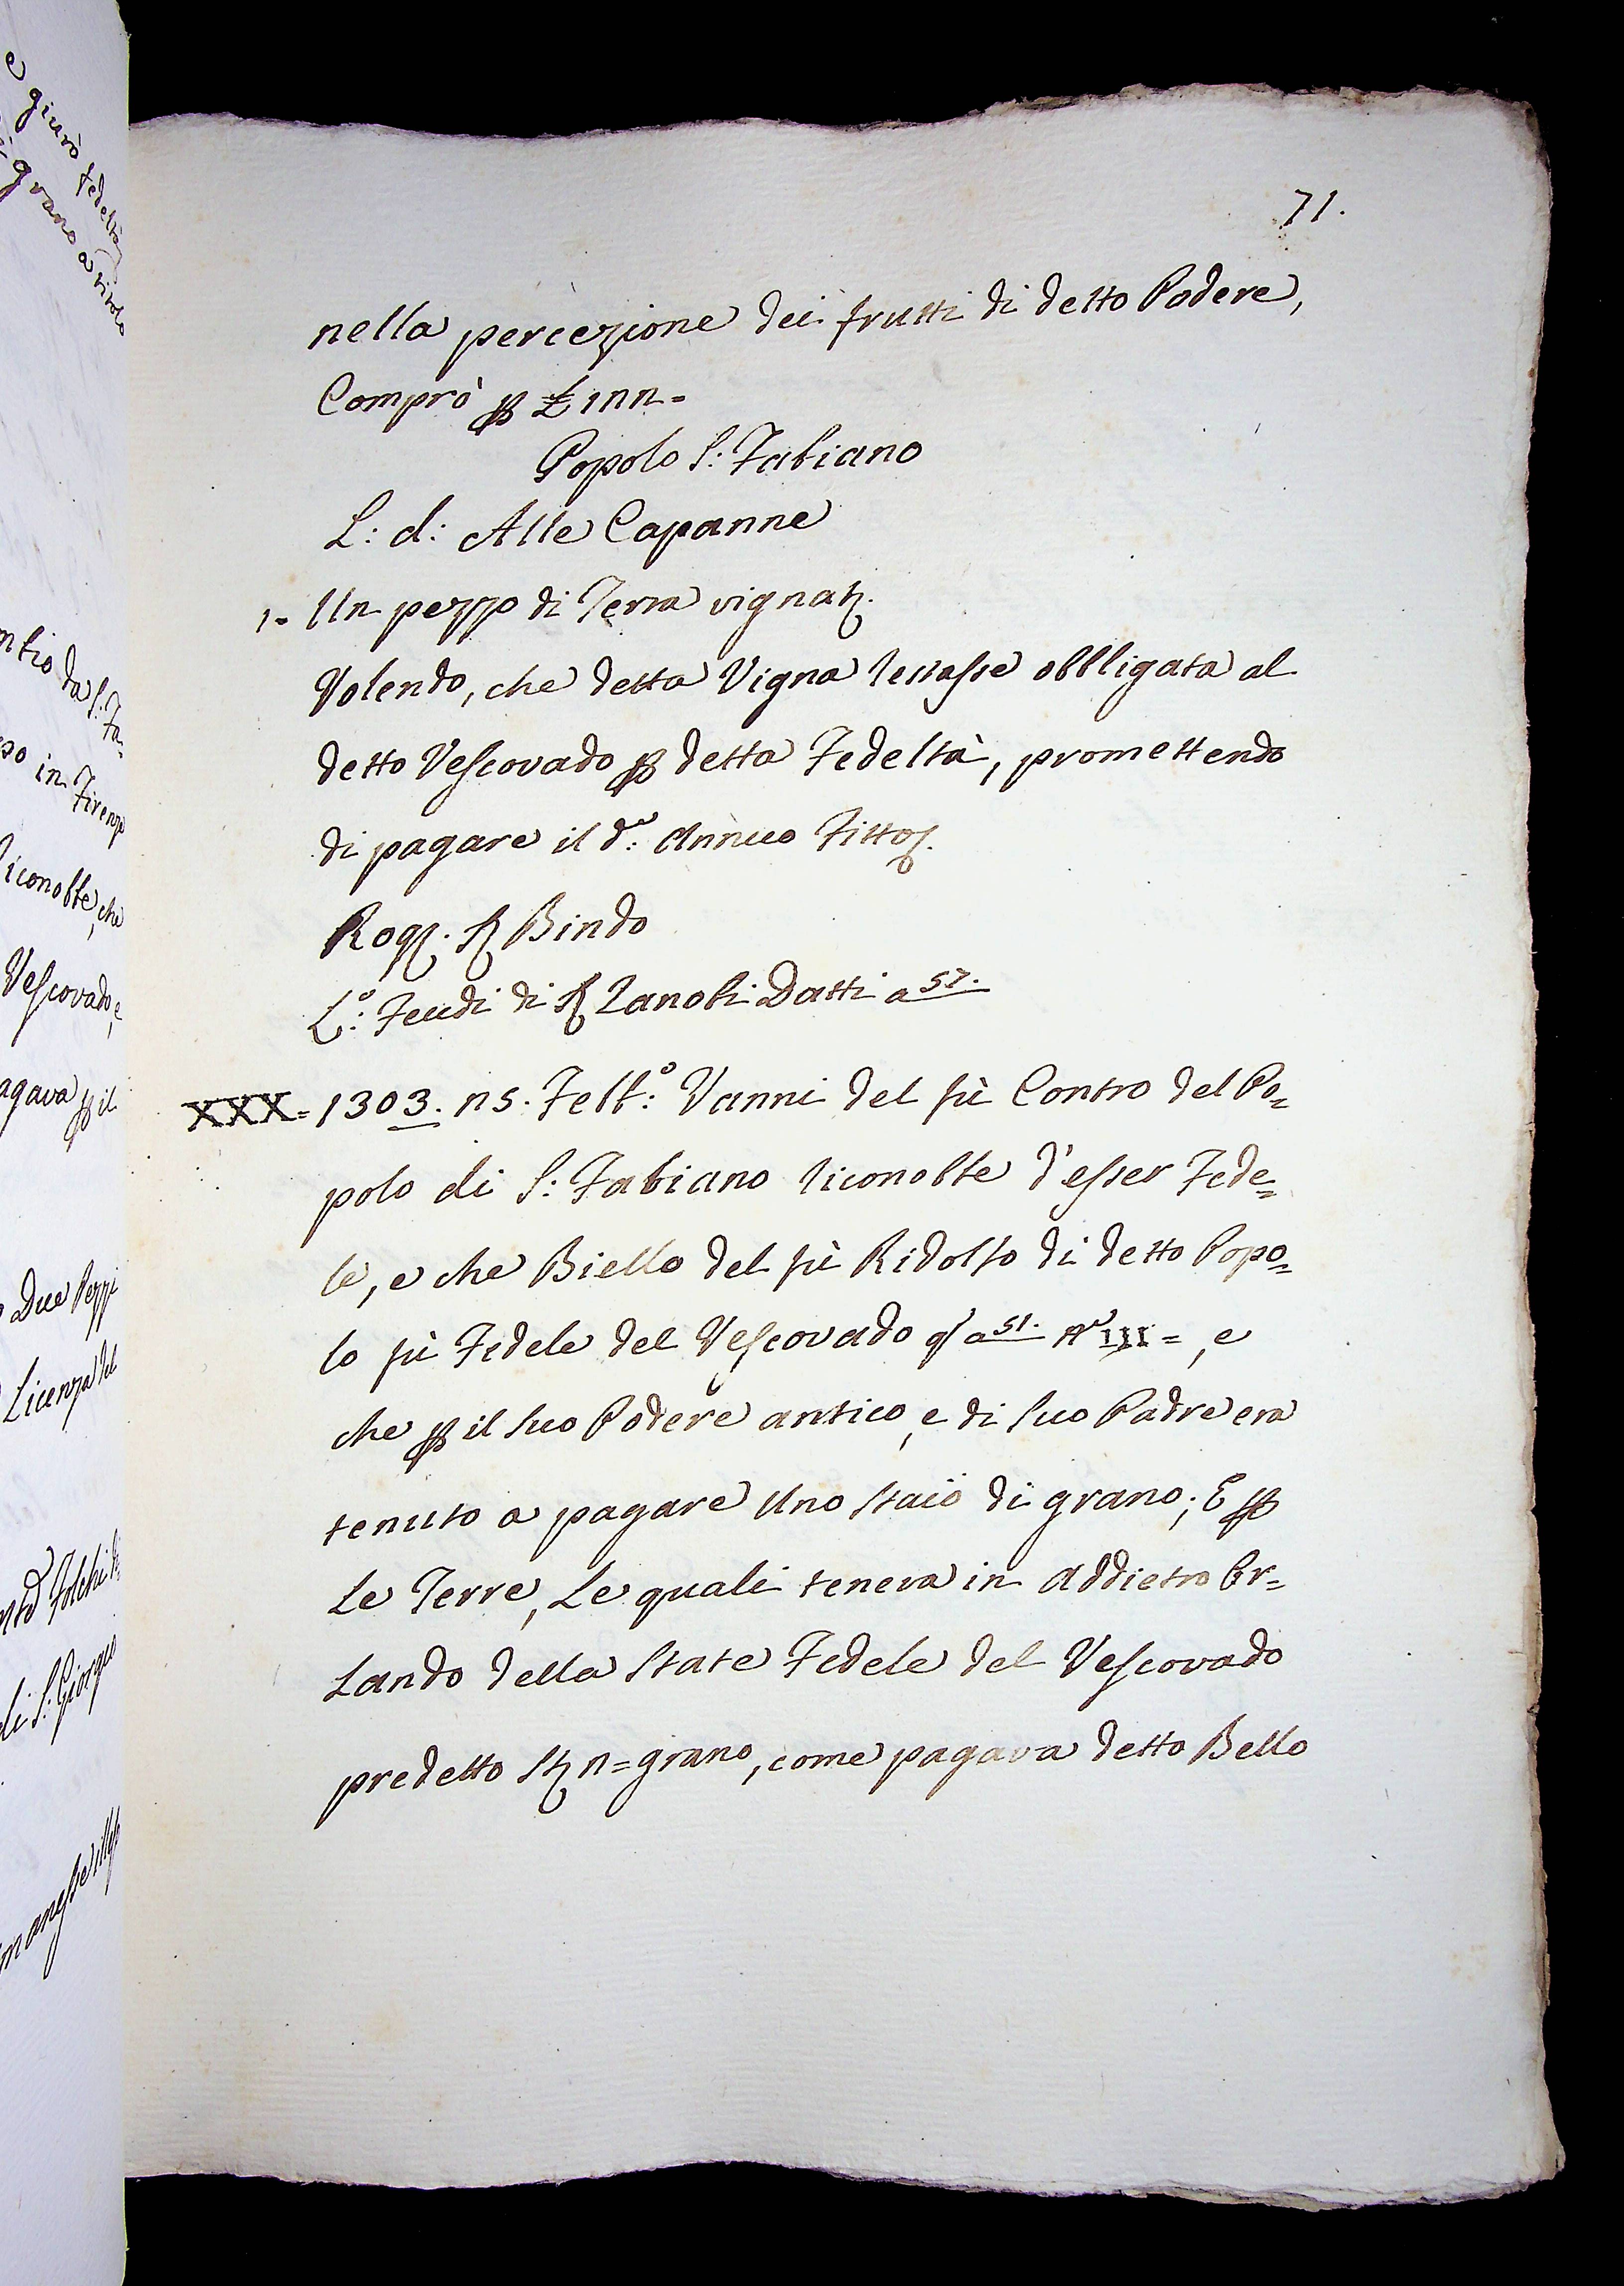 71.
nella percezione dei frutti di detto Podere,
Comprò ꝑ £ 1nn=
Popolo S: Fabiano
L: d: Alle Capanne
1= Un pezzo di Terra vignatȝ.
Volendo, che detta Vigna restasse obbligata al
detto Vescovado ꝑ detta Fedeltà, promettendo
di pagare il dº: Annuo Fitto
Rog. Bindo
Lº: Feudi di Zanobi Datti a 57.
XXX= 1303. ns. Febbº: Vanni del fù Contro del Po=
polo di S: Fabiano riconobbe d'esser Fede=
le, e che Biello del fù Ridolfo di detto Popo=
lo fù Fedele del Vescovado qͥ a 51. Nº III=, e
che ꝑ il suo Podere antico, e di suo Padre era
tenuto a pagare Uno staio di grano; E ꝑ
Le Terre, Le quali teneva in addietro Or=
Lando della State Fedele del Vescovado
predetto Stȝ n= grano, come pagava detto Bello
e giurò fedeltà
grano a titolo
da S: Fa=
in Firenze
riconobbe, che
Vescovado, e
pagava ꝑ il
Due Pezzi
Licenza del
di S: Giorgio